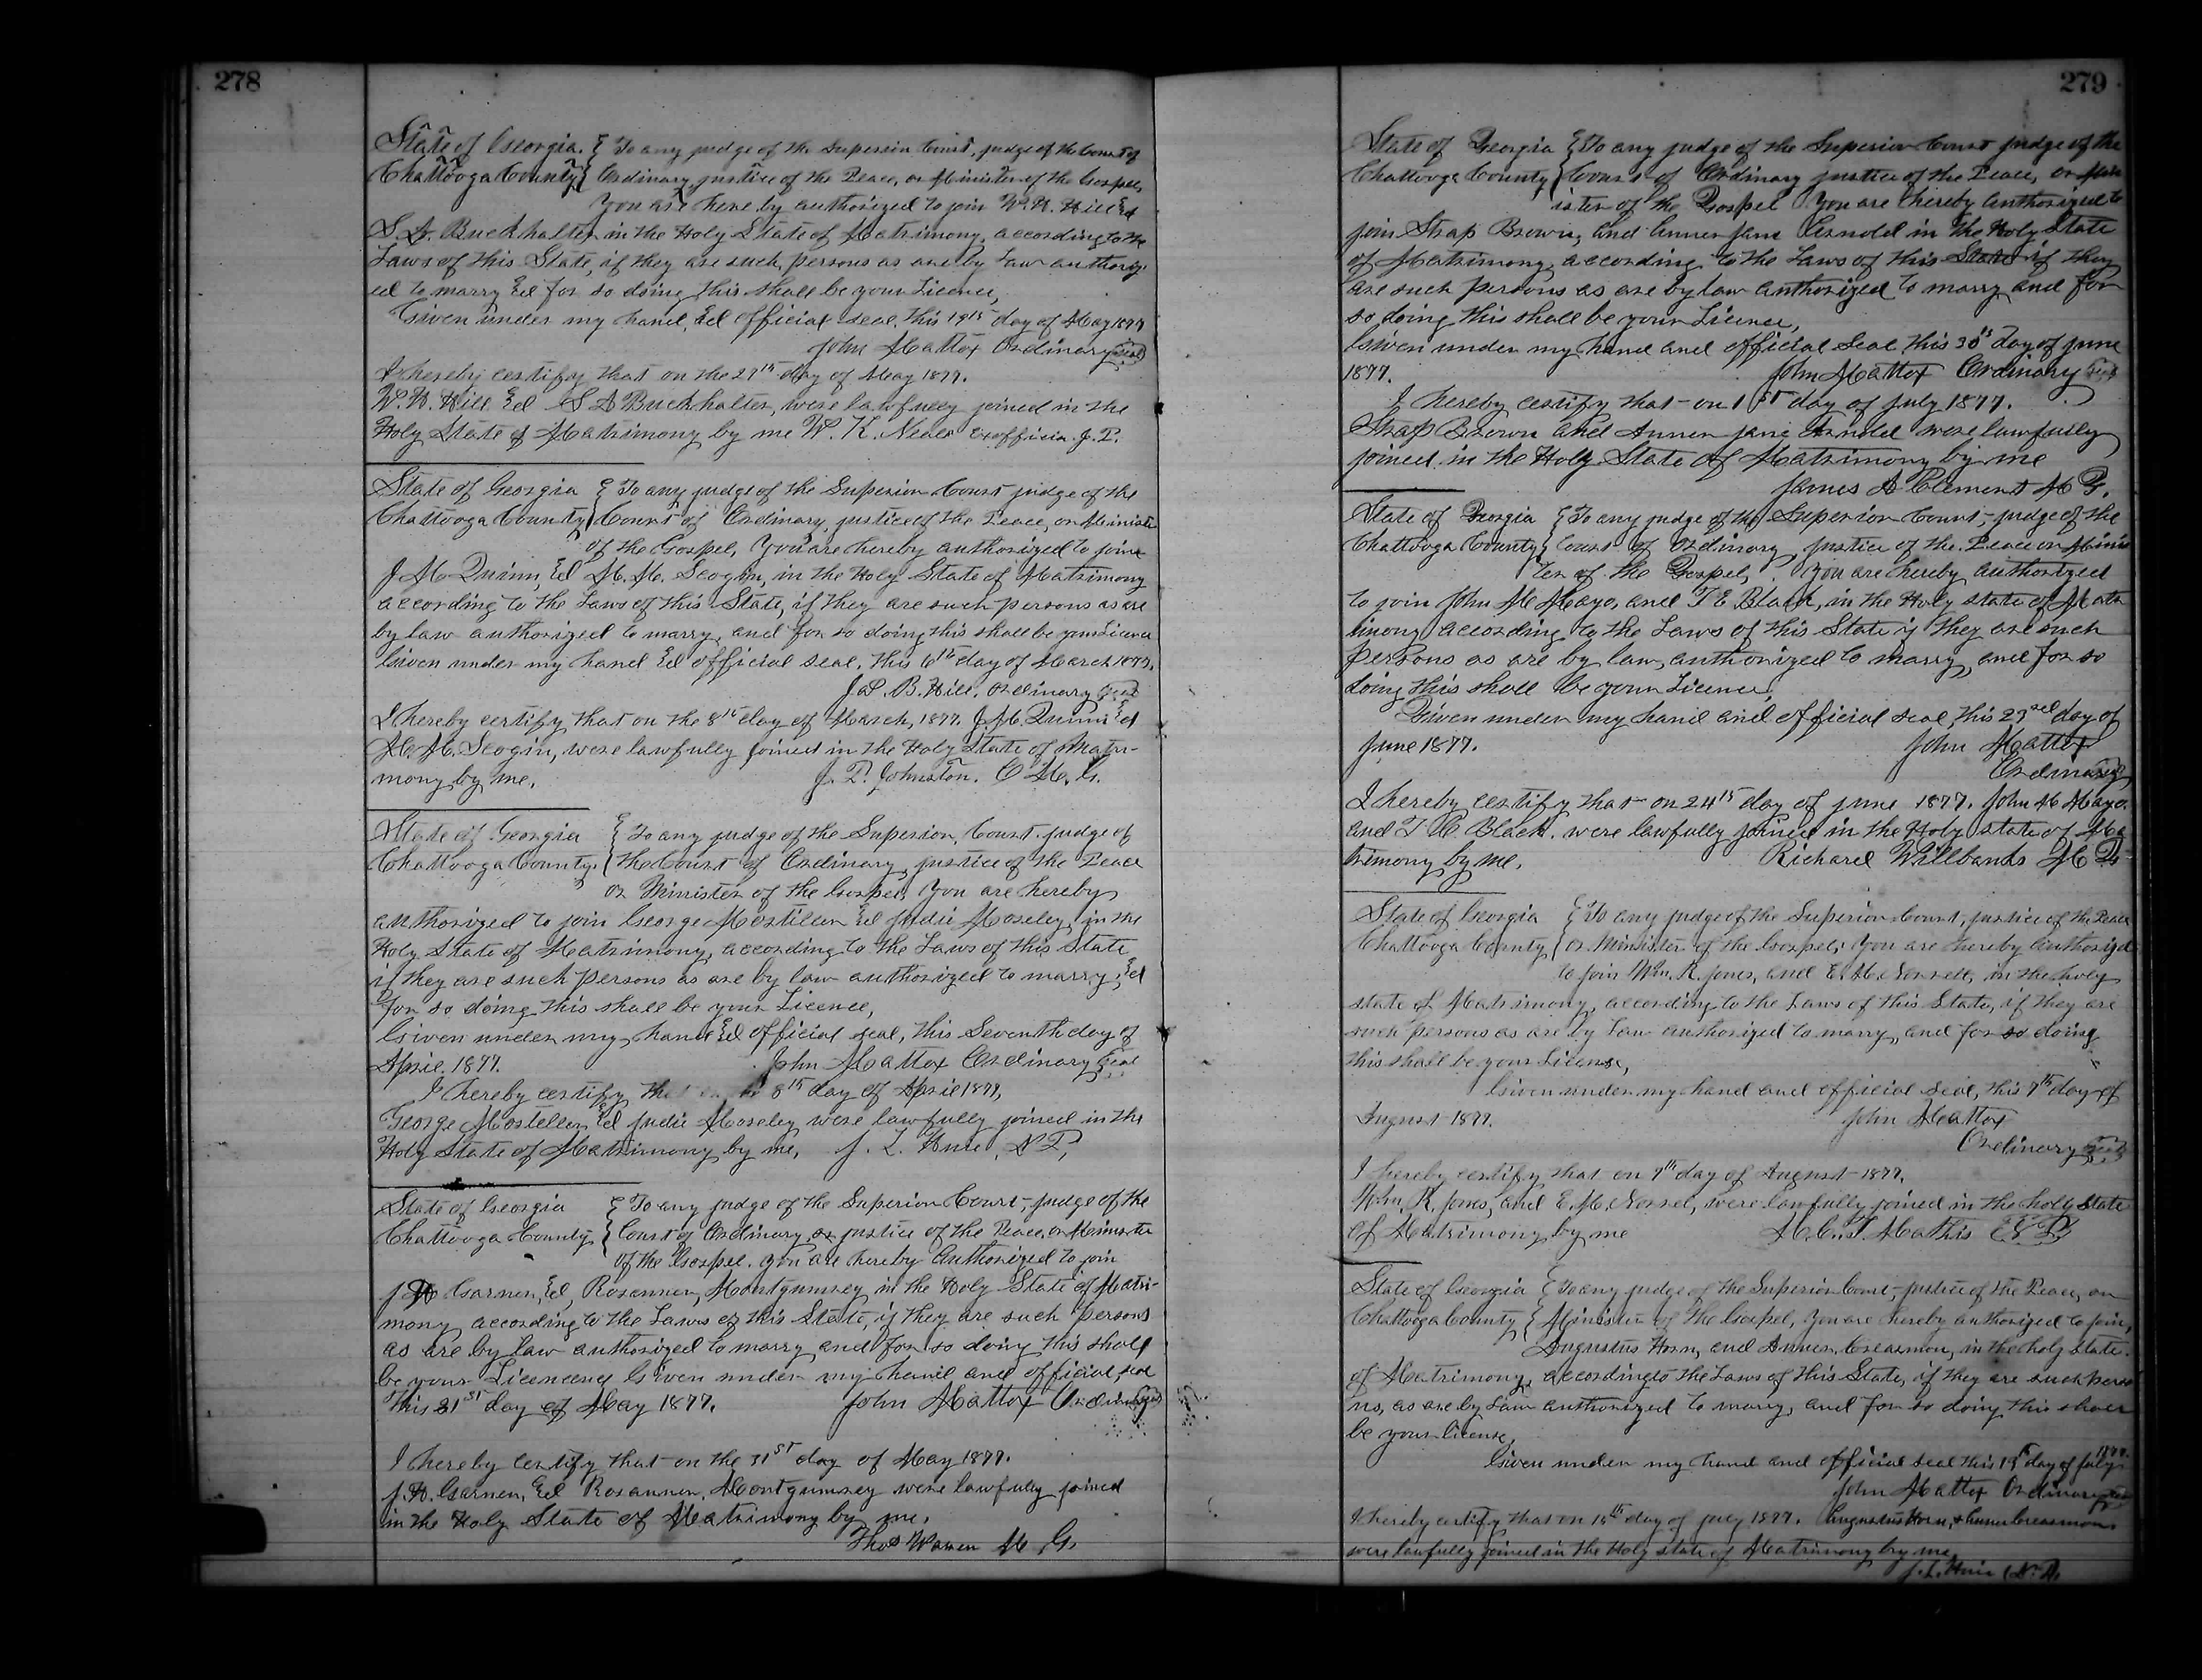 278
State of Georgia. } To any judge of the Superior Court, judge of the Court of
Chattooga County } Ordinary, justice of the Peace, or Minister of the Gospel,
You are here by authorized to join W. H. Hill &
S A. Buckhalter in the Holy State of Matrimony, according to the
Laws of this State, if they are such persons as are by Law authoriz
ed to marry & for so doing this shall be your Licence,
Given under my hand, & official seal, this 19th day of May 1877
John Mattox Ordinary Seal
I hereby certify that on the 27th day of May 1877.
W. H. Hill & S A Buckhalter, were lawfully joined in the
Holy State of Matrimony by me W. K. Neal exofficio. J. P.
State of Georgia } To any judge of the Superior Court judge of the
Chattooga County } Court of Ordinary, justice of the Peace, or Ministe
of the Gospel, You are hereby authorized to join
J. M. Quinn, & M. M. Scogin, in the Holy State of Matrimony
according to the Laws of this State, if they are such persons as are
by law authorized to marry, and for so doing this shall be your Licence
Given under my hand & official seal, this 6th day of March 1877.
B. Hill, Ordinary Seal
I hereby certify that on the 8th day of March, 1877. J. M. Quinn &
M. M. Scogin, were lawfully joined in the Holy State of Matri-
mony by me, J. P. Johnston. O M. G.
State of Georgia } To any judge of the Superior, Court, judge of
Chattooga County. } the Court of Ordinary, justice of the Peace
or Minister of the Gospel, You are hereby
authorized to join George Mostiller & Judie Moseley, in the
Holy State of Matrimony, according to the Laws of this State
if they are such persons as are by law authorized to marry, &
for so doing this shall be your Licence,
Given under my hand & official seal, this Seventh day of
April. 1877. John Mattox Ordinary Seal
I hereby certify that on the 8th day of April 1877,
George Mosteller & Judie Moseley were lawfully joined in the
Holy State of Matrimony by me, J. L. N P,
State of Georgia } To any judge of the Superior Court, judge of the
Chattooga County } Court of Ordinary, or justice of the Peace, or Ministe
of the Gospel. you are hereby Authorized to join
J. H Garner, & Rosanner, Montgumrey in the Holy State of Matri-
mony according to the Laws of this State, if they are such persons
as are by law authorized to marry, and for so doing this shall
be your Licence Given under my hand and official, seal
this 31st day of May 1877. John Mattox Ordinary Seal
I hereby certify that on the 31st day of May 1877.
J. H. Garner, & Rosanner, Montgumrey were lawfully joined
in the Holy State of Matrimony by me.
Thos Warren M G.
279
State of Georgia } To any judge of the Superior Court judge of the
Chattooga County } Court of Ordinary justice of the Peace, or Min
ister of the Gospel You are hereby authorized to
join Strap Brown, and Anner Jane Arnold in the Holy State
of Matrimony according to the Laws of this State if they
are such persons as are by law authorized to marry and for
so doing this shall be your Licence,
Given under my hand and official Seal this 30th day of June
1877. John Mattox Ordinary Seal
I hereby certify that on 1st day of July 1877.
Strap Brown and Anner Jane Arnold were lawfully
joined in the Holy State of Matrimony by me
James A Clement M G.
State of Georgia } To any judge of the Superior Court, judge of the
Chattooga County } Court of Ordinary, justice of the Peace or Minis
ter of the Gospel, You are hereby authorized
to join John M Mayo, and T E Black, in the Holy state of Matr
imony according to the Laws of this State if they are such
persons as are by law, authorized to marry, and for so
doing this shall be your Licence
Given under my hand and official seal this 23rd day of
June 1877. John Mattox
Ordinary
I hereby certify that on 24th day of June 1877. John M Mayo
and T E Black. were lawfully joined in the Holy state of Ma
trimony by me. Richard Willbanks M G
State of Georgia } To any judge of the Superior Court, justice of the Peace
Chattooga County } or Minister of the Gospel; You are hereby authorized
to join Wm. R. Jones, and E. M. Norrell, in the holy
state of Matrimony, according to the Laws of this State, if they are
such persons as are by Law authorized to marry, and for so doing
this shall be your License,
Given under my hand and official seal, this 7th day of
August 1877. John Mattox
Ordinary Seal
I hereby certify that on 7th day of August 1877.
Wm. R. Jones, and E. M. Norrel, were lawfully joined in the holy State
of Matrimony by me M. C. T. Mathis
State of Georgia } To any judge of the Superior Court, justice of the Peace, or
Chattooga County } Minister of the Gospel, You are hereby authorized to join,
Augustus Horn, and Anner, Creasmon, in the holy State
of Matrimony, according to the Laws of this State, if they are such perso
ns, as are by Law authorized to marry, and for so doing this shall
be your license,
Given under my hand and official seal this 15 day of July 1877.
John Mattox Ordinary Seal
I hereby certify that on 15th day of July 1877. Augustus Horn, & Anner Creasmon
were lawfully joined in the Holy state of Matrimony by me